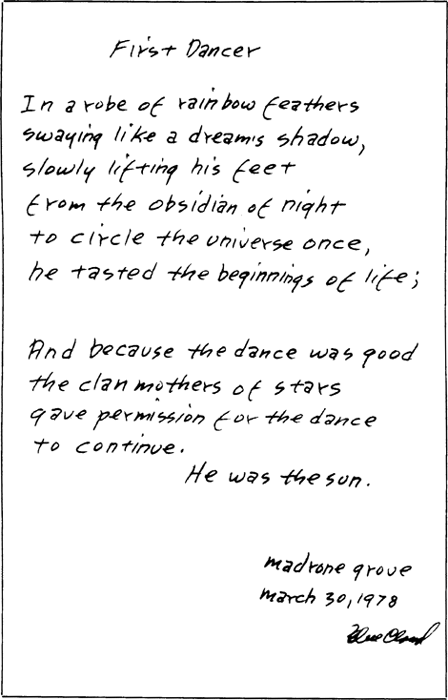 First Dancer
In a robe of rainbow feathers
swaying like a dream's shadow,
slowly lifting his feet
from the obsidian of night
to circle the universe once,
he tasted the beginnings of life;
And because the dance was good
the clan mothers of stars
gave permission for the dance
to continue.
He was the sun.
madrone grove
march 30, 1978
Blue Cloud